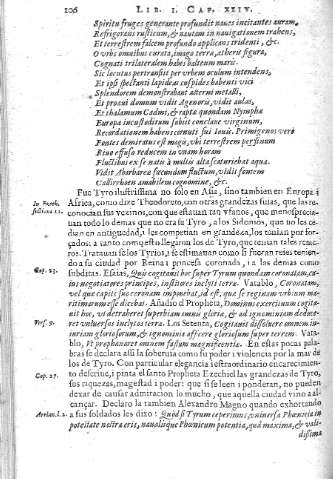 106 LIB. I. CAP. XXIV.
Spiritu fruges generante profundit naues incitantes auram,
Refrigerans rusticum, & nautam in nauigationem trahens,
Et terrestrem falcem profundo applicans tridenti, &c.
O vrbs omnibus curata, imago terræ, ætheris figura,
Cognati trilateralem habes balteum maris.
Sic locutus pertransit per vrbem oculum intendens,
Et ipsi spectanti lapideæ cuspides habenti vici
Splendorem demonstrabant alterni metalli,
Et procul domum vidit Agenoris, vidit aulas,
Et thalamum Cadmi, & rapta quondam Nympha
Europa incustoditum subiit conclaue virginum,
Recordationem habens cornuti sui Iouis. Primigenos verò
Fontes demiratus est magis, vbi terrestrem per sinum
Riuo effuso reducem in vnam horam
Fluctibus ex se natis multis alta scaturiebat aqua.
Vidit Abarbarea fœcundum fluctum, vidit fontem
Callirrhoen amabilem cognomine, &c.
Fue Tyro ilustrissima no solo en Asia, sino tambien en Europa, i
In Ezech. Africa, como dize Theodoreto, con otras grandezas suias, que las re-
conocian sus vezinos, con que estauan tan vfanos, que menosprecia-
uan todo lo demas que no era su Tyro, a los Sidonios, que no les ce-
dian en antiguedad, i les competian en grandeza, los tenian por for-
çados: a tanto como esto llegaron los de Tyro, que tenian tales reme-
ros. Tratauanse los Tyrios, i estimauan como si fueran reies, tenien-
do a su ciudad por Reina i princesa coronada, i a las demas como
Cap. 23. subditas. Esaias, Quis cogitauit hoc super Tyrum quondam coronatam, cu-
ius negotiatores principes, institores inclyti terræ. Vatablo, Coronatam,
vel quæ capite suo coronam imponebat, id est, quæ se reginam vrbium ma-
ritimarum esse dicebat. Añadio el Propheta, Dominus exercituum cogita-
Vers. 9. uit hoc, vt detraheret superbiam omnis gloriæ, & ad ignominiam deduce-
ret vniuersos inclytos terræ. Los Setenta, Cogitauit dissoluere omnem in-
iuriam gloriosorum, & ignominia afficere gloriosum super terram. Vata-
blo, Vt prophanaret omnem fastum magnificentiæ. En estas pocas pala-
bras se declara assi la soberuia como su poder i violencia por la mar de
los de Tyro. Con particular elegancia i extraordinario encarecimien-
Cap. 27. to descriue, i pinta el santo Propheta Ezechiel las grandezas de Tyro,
sus riquezas, magestad i poder: que si se leen i ponderan, no pueden
dexar de causar admiracion lo mucho, que aquella ciudad vino a al-
cançar. Declaro la tambien Alexandro Magno quando exhortando
Arrian. l. 2. a sus soldados les dixo: Quod si Tyrum ceperimus, vniuersa Phœnicia in
potestate nostra erit, naualisque Phœnicum potentia, quæ maxima, & vali-
dissima